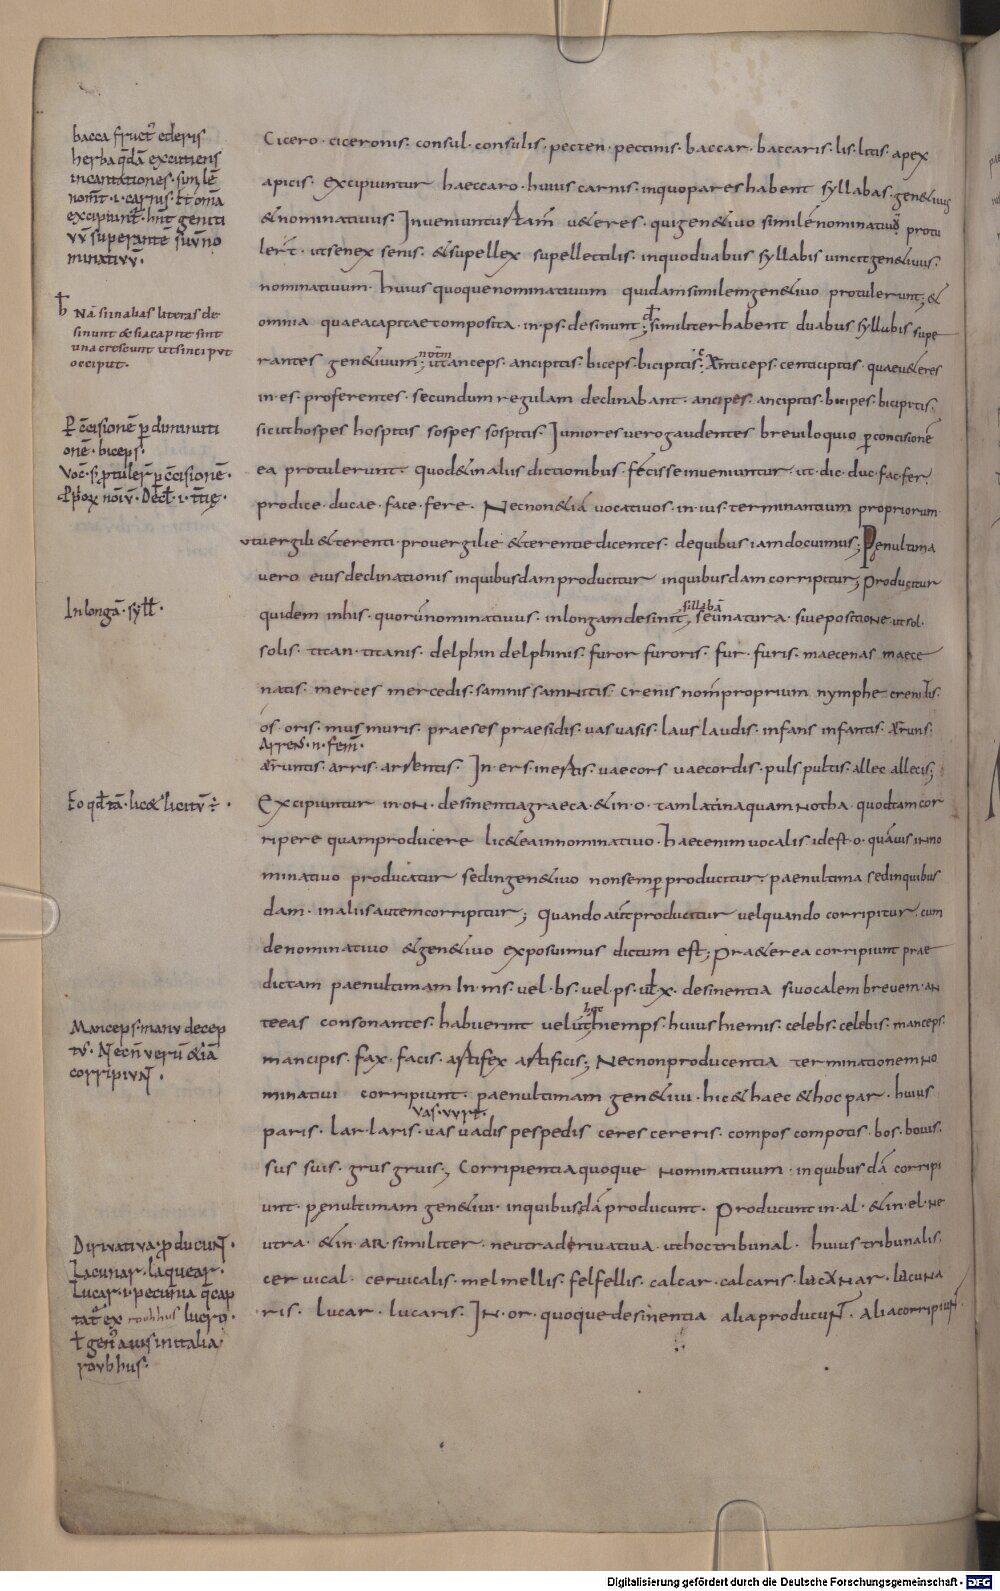 bacca fruct᷒ ederis
herba qđā excutiens
incantationes · simłē
nom̄t · i · carnis · t̄t om̄a
excipiunt̄ · hn̄t geniti
vv̄ superantē suv̄ no
minatiuv̄ ·
ƀ Nā si in alias literas de
sinunt & si a capite sint
una crescunt ut sinciput
occiput ·
Cicero · ciceronis · consul · consulis · pecten · pectinis · baccar · baccaris · lis · litis · apex
apicis · excipiuntur haec caro · huius carnis · in quo pares habent syllabas · gen&iuus
& nominatiuus · Inueniuntur tam̄ u&eres · qui gen&iuo similē nominatiuū protu
ler̄t · ut senex senis · & supellex supellectilis · in quo duabus syllabis uincit gen&iuus ·
nominatiuum · huius quoque nominatiuum quidam similem gen&iuo protulerunt; &
omnia quae a capitae composita · in · ps · desinunt ; similiter habent duabus syllabis supe
rantes gen&iuum ; ut anceps · ancipitis · biceps · bicipitis · & anticeps · centicipitis · quae u&eres
in · es · proferentes · secundum regulam declinabant · ancipes · ancipitis · bicipes · bicipitis ·
sicut hospes hospitis sospes sospitis · Iuniores uero gaudentes breuiloquio p concisionē
ea protulerunt · quod & in aliis dictionibus · fecisse inueniuntur · ut · dic · duc · fac · fer ·
pro dice · ducae · face · fere · Nec non & iā uocatiuos · in · ius · terminantium propriorum
ut uergili & terenti · pro uergilie & terentie dicentes · de quibus iam docuimus; Penultima
uero eius declinationis in quibusdam producitur in quibusdam corripitur; Producitur
quidem in his · quorū nominatiuus · in longam desinit ; seu natura · siue positione ut sol ·
solis · titan · titanis · delphin delphinis · furor furoris · fur · furis · maecenas maece
natis · merces mercedis · samnis samnitis · crenis nom̄ proprium nymphe crenidis ·
os · oris · mus muris · praeses praesidis · uas uasis · laus laudis · infans infantis · aruns ·
Arrens · n · fem̄ ·
aruntis · arris · arrentis · In · ers · iners inertis · uaecors uaecordis · puls pultis · allec allecis;
Excipiuntur in · on · desinentia graeca · & in · o · tam latina quam notha · quod tam cor
ripere quam producere lic& ea in nominatiuo · haec enim uocalis id est · o · quāuis in no
minatiuo producatur sed in gen&iuo non semp producitur · paenultima sed in quibus
dam · in aliis autem corripitur; Quando aūt producitur uel quando corripitur · cum
de nominatiuo & gen&iuo exposuimus dictum est; Pra&erea corripiunt prae
dictam paenultimam In · ms · uel · bs · uel · ps · uł x · desinentia si uocalem breuem · an
te eas consonantes · habuerint uelut hiemps · huius hiemis · celebs · celebis · manceps ·
mancipis · fax · facis · artifex artificis; Nec non producentia terminationem no
minatiui corripiunt · paenultimam gen&iui · hic & haec & hoc par · huius
paris · lar · laris · uas uadis pes pedis ceres cereris · compos compotis · bos · bouis ·
sus suis · grus gruis; Corripientia quoque nominatiuum · in quibusdā corripi
unt · pęnultimam gen&iui · in quibusdā producunt · Producunt in · al · & in · el · ne
utra · & in · ar · similiter · neutra deriuatiua · ut hoc tribunal · huius tribunalis ·
ceruical · ceruicalis · mel mellis · fel fellis · calcar · calcaris · lacunar · lacuna
ris · lucar · lucaris · In · or · quoque desinentia alia producunt · alia corripiunt ·
P c̄cisionē p diminuti
onē · biceps ·
In longā · syłł ·
Eo qđ tā · lic& licitū ·
Manceps · manu decep
tus · Nec n̄ verū & iā
corripiunt ·
Dirivativa · p ducunt ·
Lacunar · laquear ·
Lucar · i · pecunia q̄ cap
tat̄ ex lucro ·
ł gen᷒ auis in italia